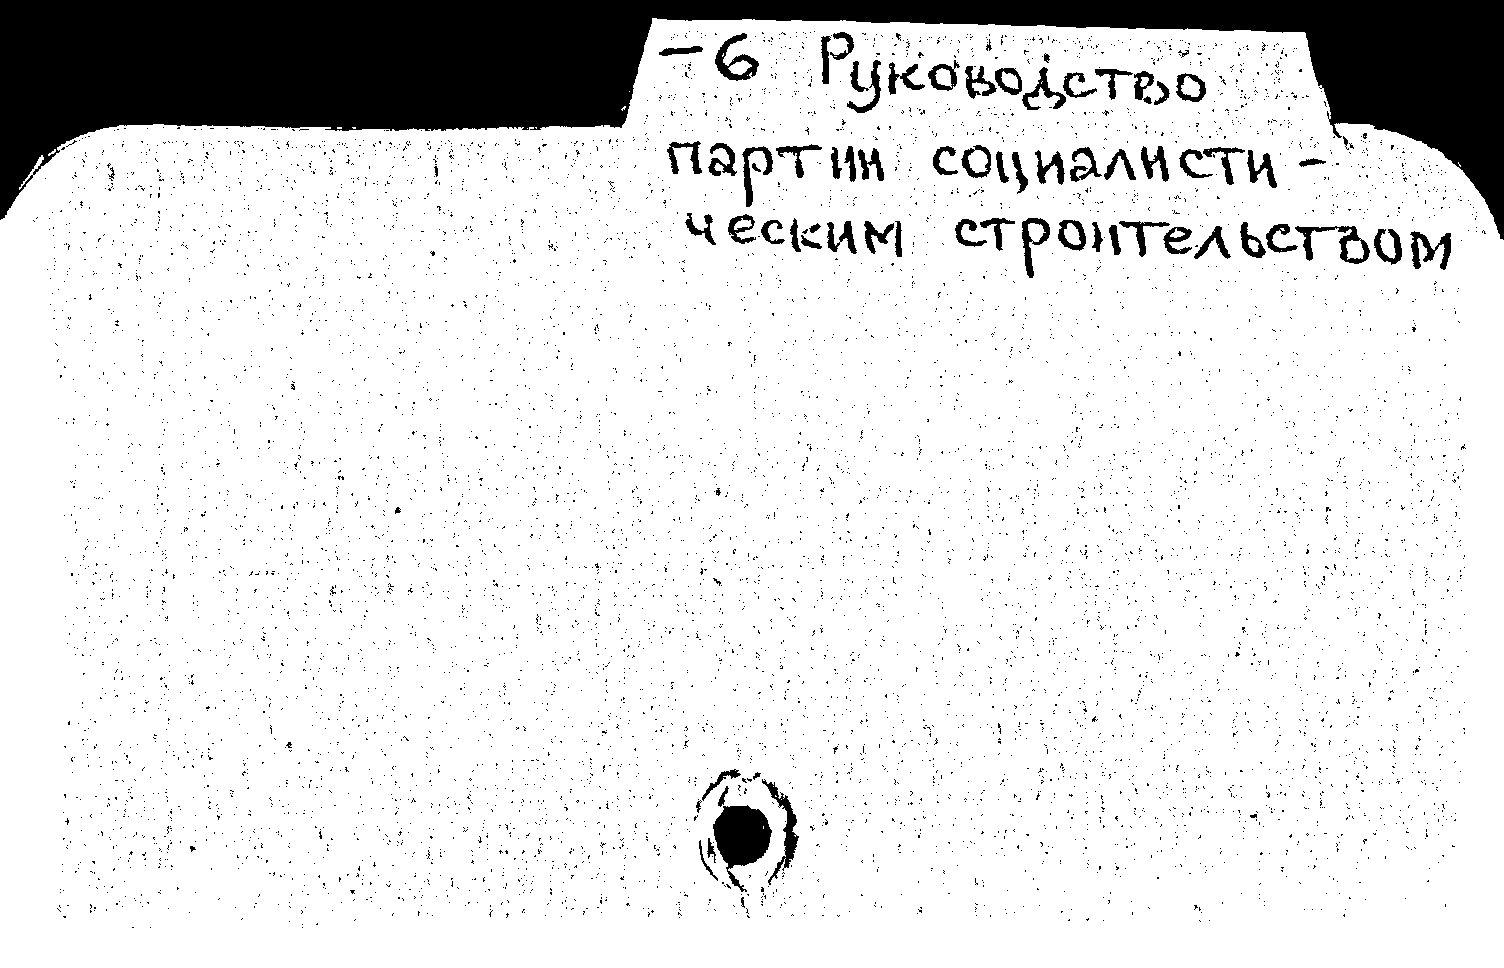 -6 Руководство
партии социалисти-
ческим строительством